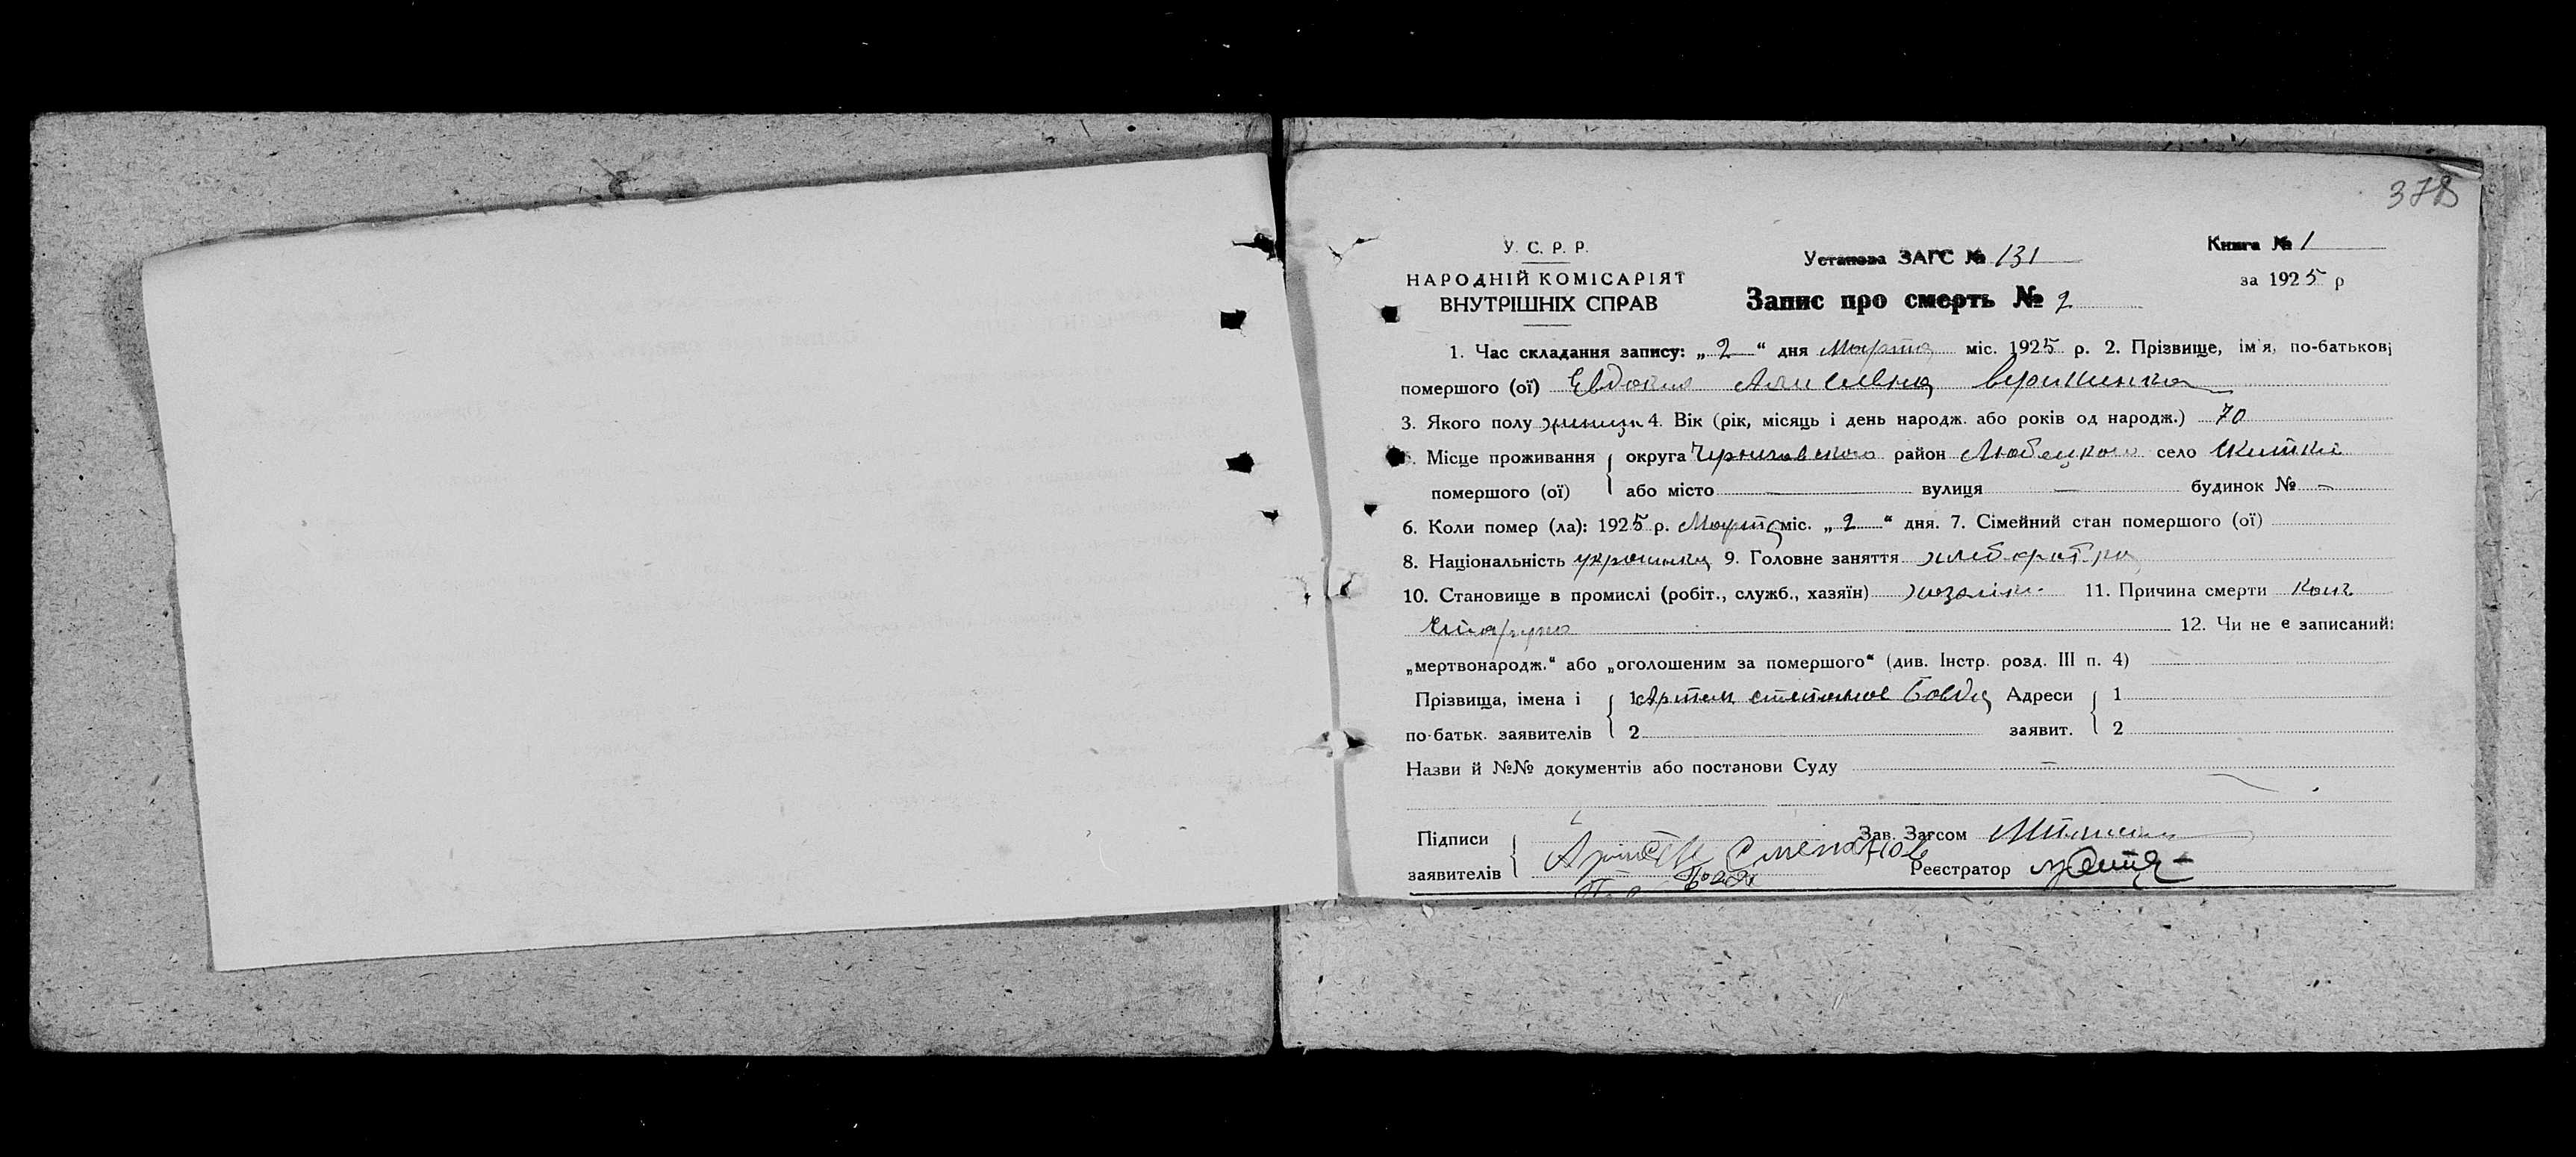 378
У. С. Р. Р.
НАРОДНІЙ КОМІСАРІЯТ
ВНУТРІШНІХ СПРАВ
Установа ЗАГС № 131
Запис про смерть № 2
Книга № 1
за 1925 р
1. Час складання запису: „ 2 “ дня Марта міс. 1925 р. 2. Прізвище, ім'я, по-батькові
помершого (ої) Евдокия
3. Якого полу 4. Вік (рік, місяць і день народж. або років од народж.) 70
5. Місце проживання округа Черниговского район Любецкого село
помершого (ої) або місто — вулиця — будинок № -
6. Коли помер (ла): 1925 р. Марта міс. „ 2 “ дня. 7. Сімейний стан помершого (ої)
8. Національність украинка 9. Головне заняття
10. Становище в промислі (робіт., служб., хазяїн) 11. Причина смерти
12. Чи не є записаний:
„мертвонародж.“ або „оголошеним за помершого“ (див. Інстр. розд. III п. 4)
Прізвища, імена і 1 Артем степанов Бовда Адреси 1
по-батьк. заявителів 2 заявит. 2
Назви й №№ документів або постанови Суду —
Підписи Зав. Загсом
заявителів Реєстратор